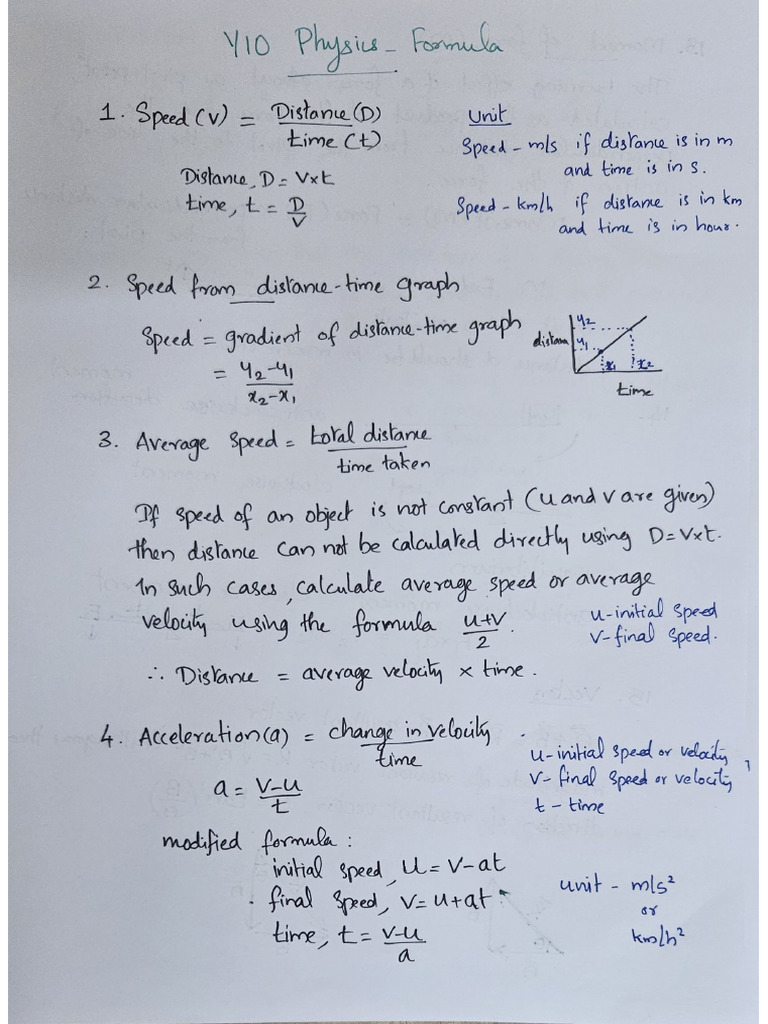 Y10 Physics - Formula
1. Speed (v) = Distance (D) / time (t)
Unit
Speed - m/s if distance is in m
and time is in s.
Distance, D = v×t
time, t = D/v
Speed - km/h if distance is in km
and time is in hour.
2. Speed from distance-time graph
Speed = gradient of distance-time graph
= y₂-y₁ / x₂-x₁
distan
y₂
y₁
x₁ x₂
time
3. Average speed = total distance / time taken
If speed of an object is not constant (u and v are given)
then distance can not be calculated directly using D=v×t.
In such cases, calculate average speed or average
velocity using the formula u+v/2.
u-initial speed
v-final speed.
∴ Distance = average velocity × time.
4. Acceleration (a) = change in velocity / time
u-initial speed or velocity,
v- final speed or velocity
t - time
a = v-u / t
modified formula :
initial speed, u = v-at
final speed, v = u+at
time, t = v-u / a
unit - m/s²
or
km/h²